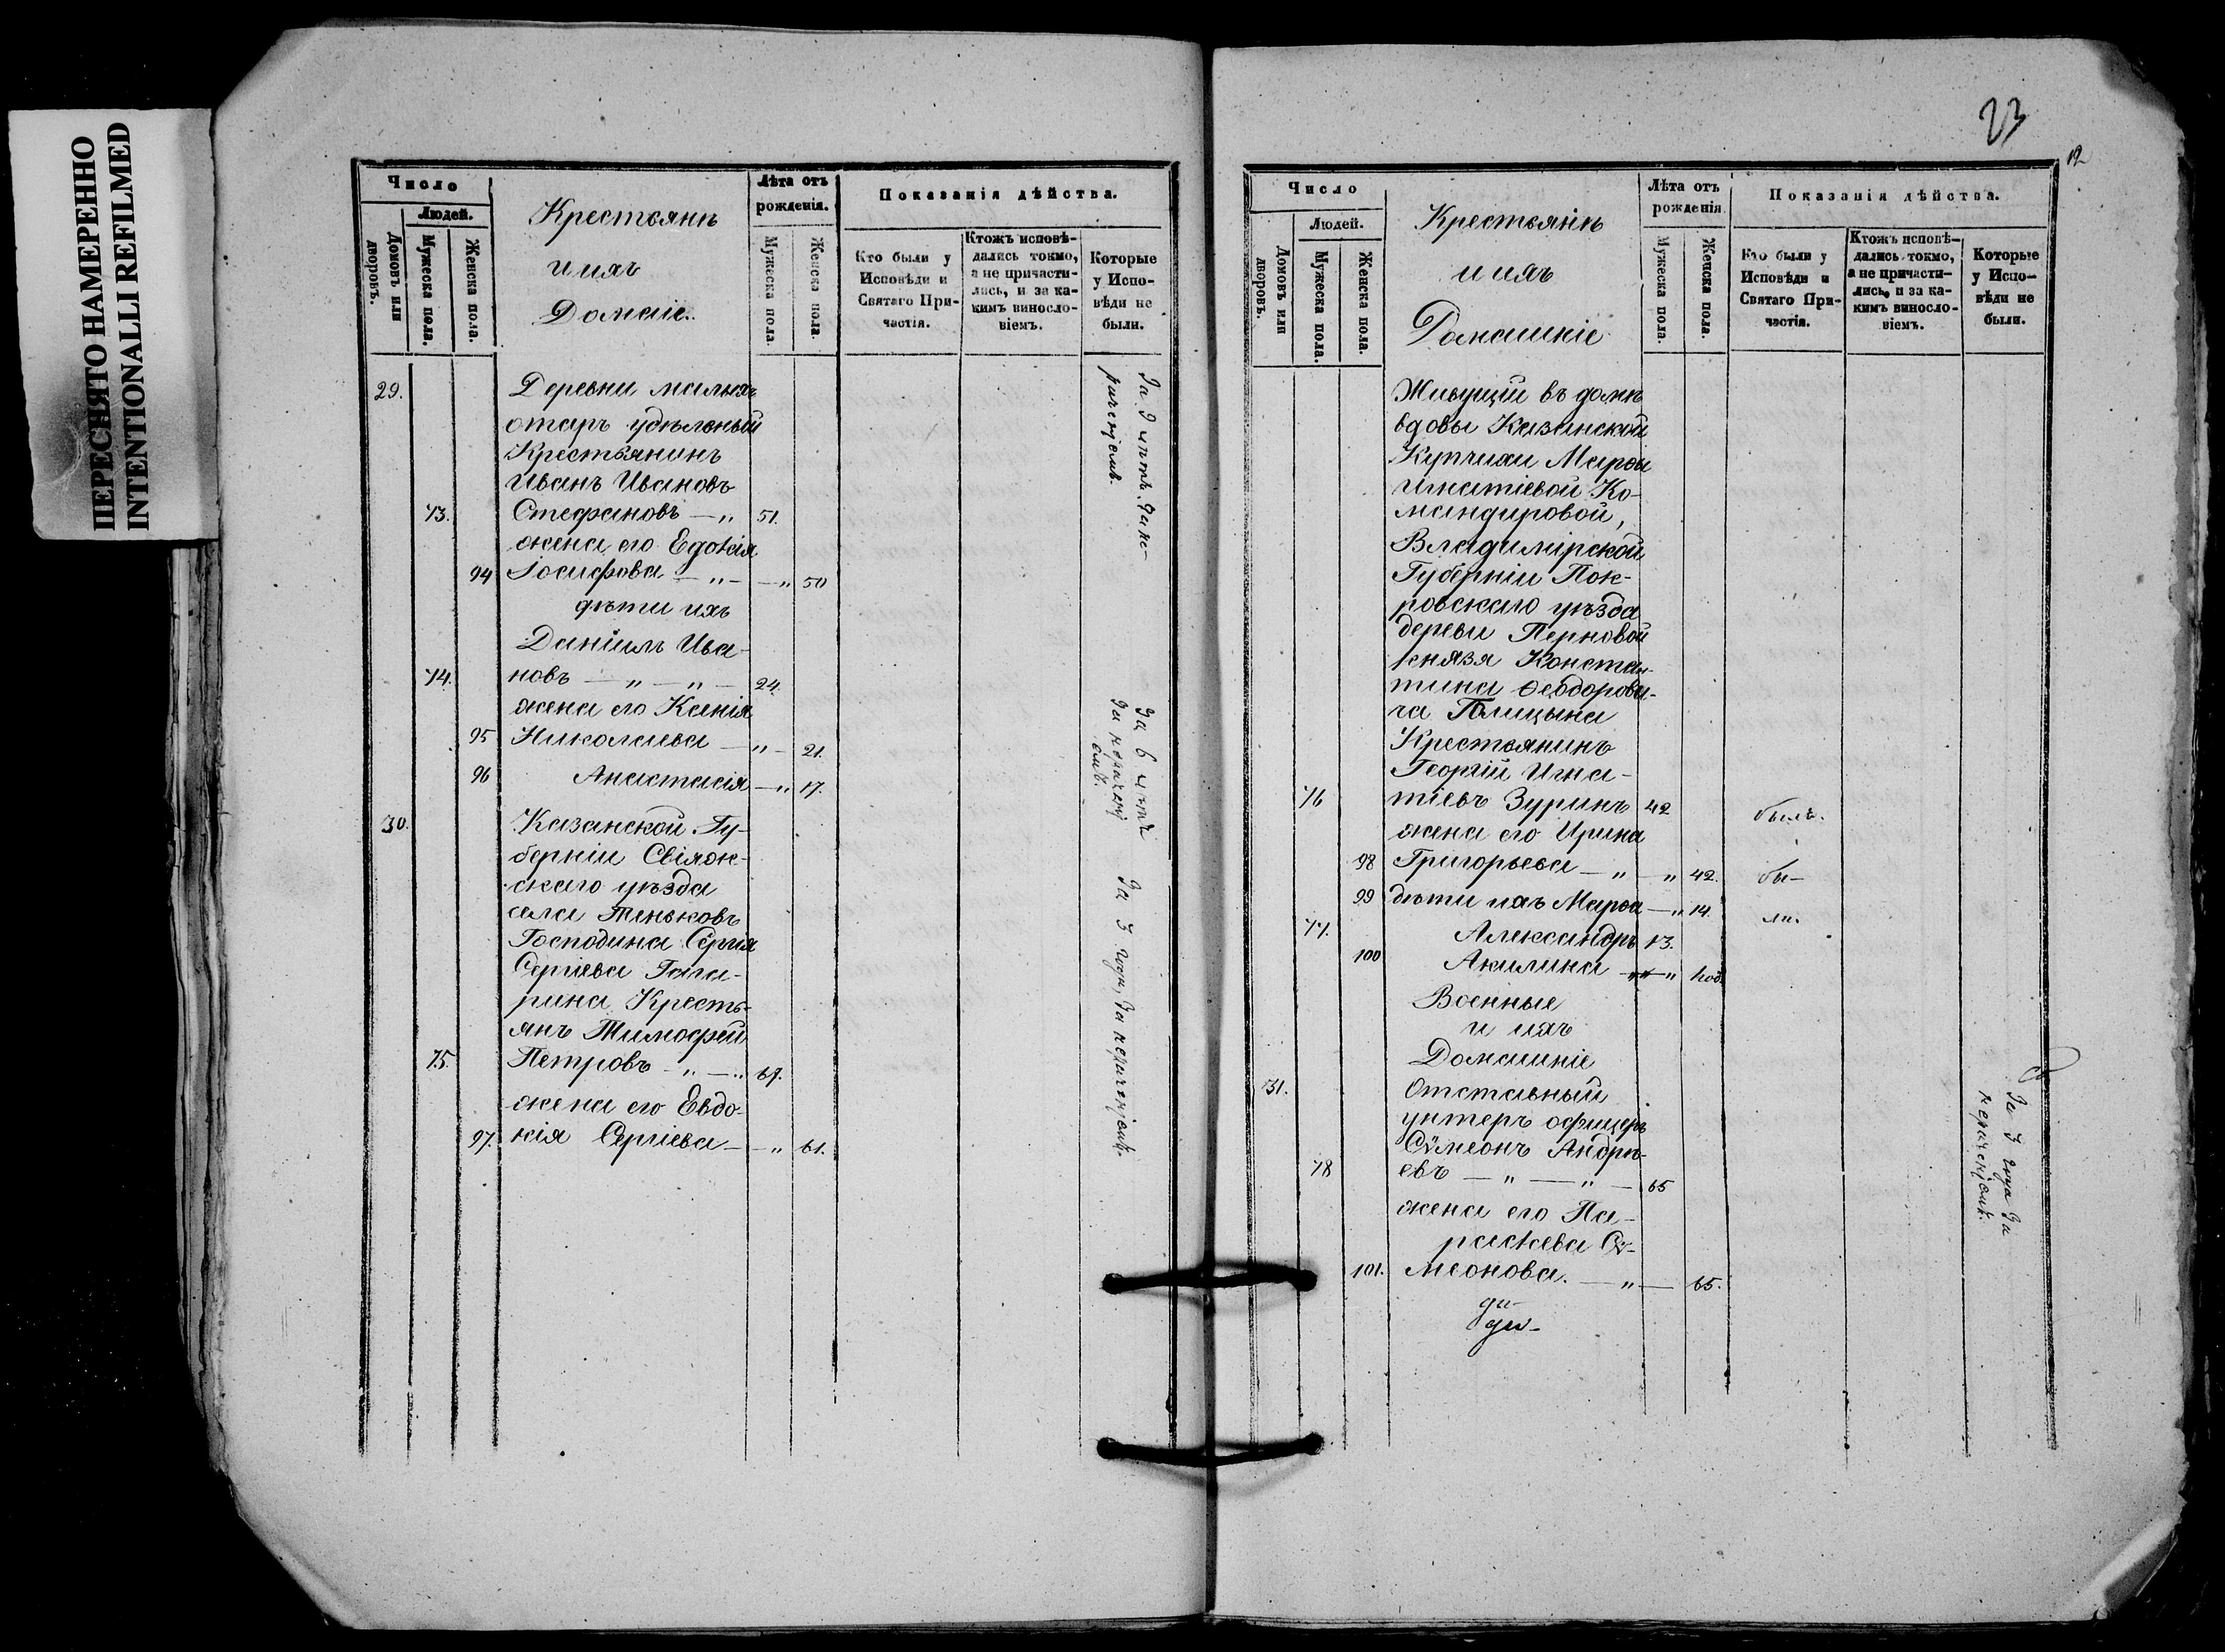 ПЕРЕСНЯТО НАМЕРЕННО
INTENTIONALLI REFILMED
Число
Людей.
Домовъ или дворовъ.
Мужеска пола.
Женска пола.
Крестьянѣ
и ихъ
Лѣта отъ рожденія.
Мужеска пола.
Женска пола.
Показанія дѣйства.
Кто были у
Исповѣди и
Святаго При-
частія.
Ктожъ исповѣ-
дались токмо,
а не причасти-
лись, и за ка-
кимъ винослo-
віемъ.
Которые
у Испо-
вѣди не
были.
29. Деревни
отаръ удѣльный
Крестьянинъ
Иванъ Ивановъ
73. Стефановъ — „ 51.
жена его Едокія
94 Іосифова — „ — — „ 50
дѣти ихъ
Даніилъ Ива-
74. новъ — „ — „ — 24.
жена его Ксенія
95 Николаева — „ — 21.
96 Анастасія — „ 17.
30. Казанской Гу-
берніи Свіяж-
скаго уѣзда
села Теньковъ
Господина Сергія
Сергіева Гага-
рина Кресть-
янъ Тимофей
75. Петровъ — „ — „ 67.
жена его Евдо-
97. кія Сергіева — — „ 61.
За 3 года, за
23
12
Число
Людей.
Домовъ или дворовъ.
Мужеска пола.
Женска пола.
Крестьянѣ
и ихъ
Домашніе
Лѣта отъ
рожденія
Мужеска пола.
Женска пола.
Показанія дѣйства.
Кто были у
Исповѣди и
Святаго При-
частія.
Ктожъ исповѣ-
дались токмо,
а не причасти-
лись, и за ка-
кимъ винослo-
віемъ.
Которые
у Испо-
вѣди не
были.
Живущій въ домѣ
вдовы Казанской
Купчихи Марѳы
Игнатіевой Ко-
мандировой,
Владимірской
Губерніи Пок-
ровскаго уѣзда
деревни Перновой
князя Констан-
тина Ѳеодорови-
ча Голицына
Крестьянинъ
Георгій Игна-
76 тіевъ Зуринъ 42 былъ.
жена его Ирина
98 Григорьева — „ — „ 42. бы-
99 дѣти ихъ Марѳа — „ 14. ли.
77. Александръ 13.
100 Акилина — „ — „ 1 год.
Военные
и ихъ
Домашніе
31. Отставный
унтеръ офицеръ
Сѵмеонъ Андрѣ-
78 евъ — „ — „ — 65
жена его Па-
раскева Сѵ-
101. меонова. — „ — 65.
За 3 года за